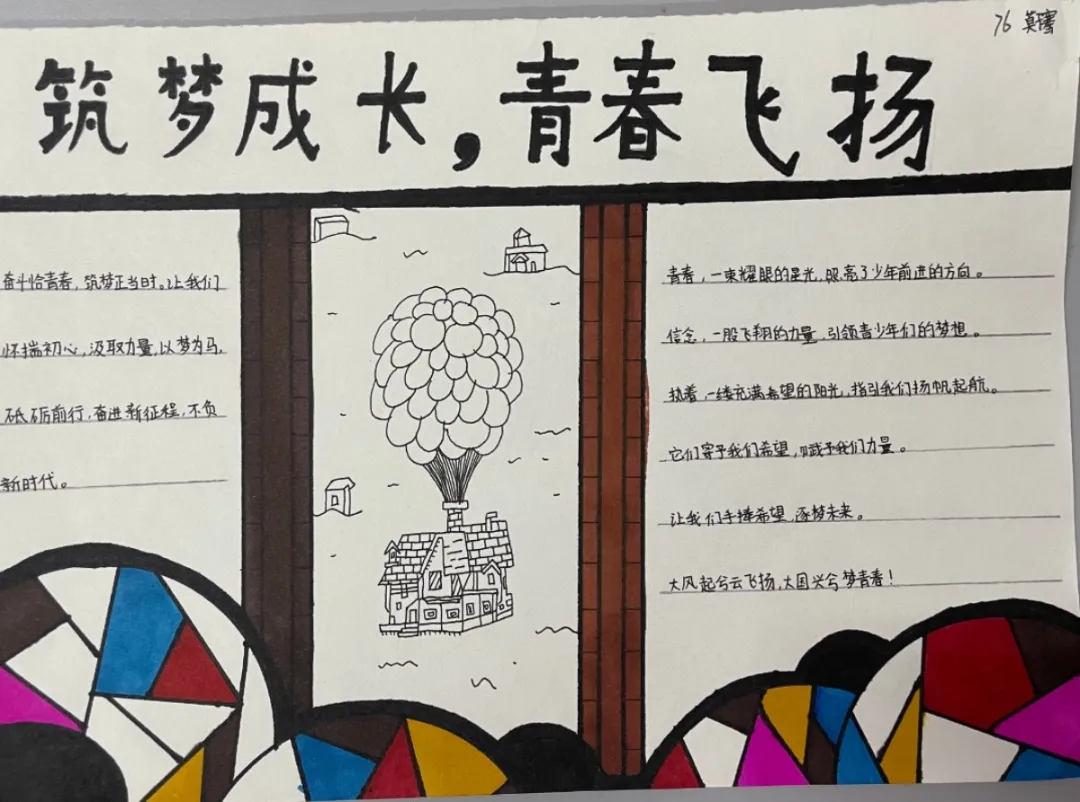 76
筑梦成长，青春飞扬
奋斗恰青春，筑梦正当时。让我们
怀揣初心，汲取力量，以梦为马，
砥砺前行，奋进新征程，不负
新时代。
青春，一束耀眼的星光，照亮了少年前进的方向。
信念，一股飞翔的力量，引领青少年们的梦想。
执着，一缕充满希望的阳光，指引我们扬帆起航。
它们寄予我们希望，赋予我们力量。
让我们手捧希望，逐梦未来。
大风起兮云飞扬，大国兴兮梦青春！